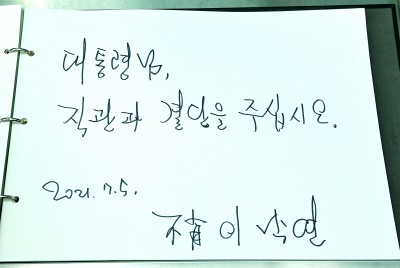 대통령님,
직관과 결단을 주십시오.
2021. 7. 5.
不肖 이낙연